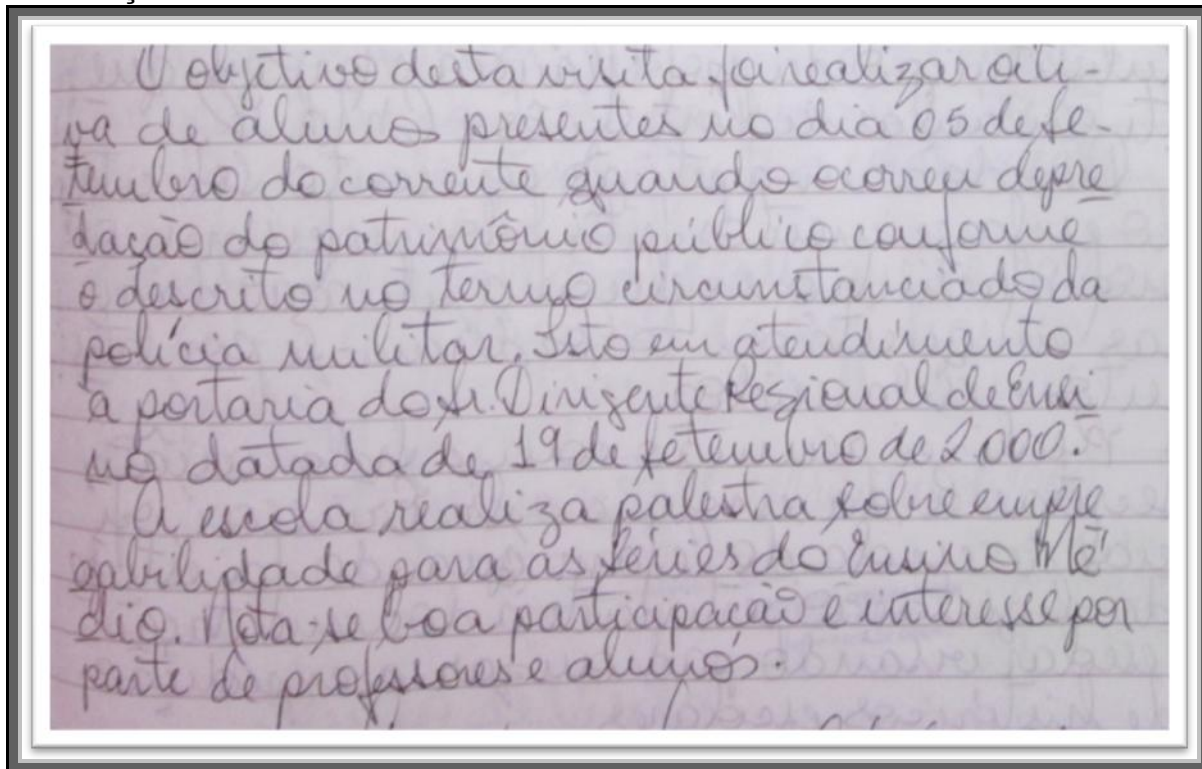 O objetivo desta visita foi realizar oiti-
va de alunos presentes no dia 05 de se-
tembro do corrente quando ocorreu depre
dação do patrimônio público conforme
o descrito no termo circunstanciado da
polícia militar. Isto em atendimento
a portaria do Sr. Dirigente Regional de Ensi
no datada de 19 de setembro de 2000.
A escola realiza palestra sobre empre
gabilidade para as séries do Ensino Mé
dio. Nota-se boa participação e interesse por
parte de professores e alunos.